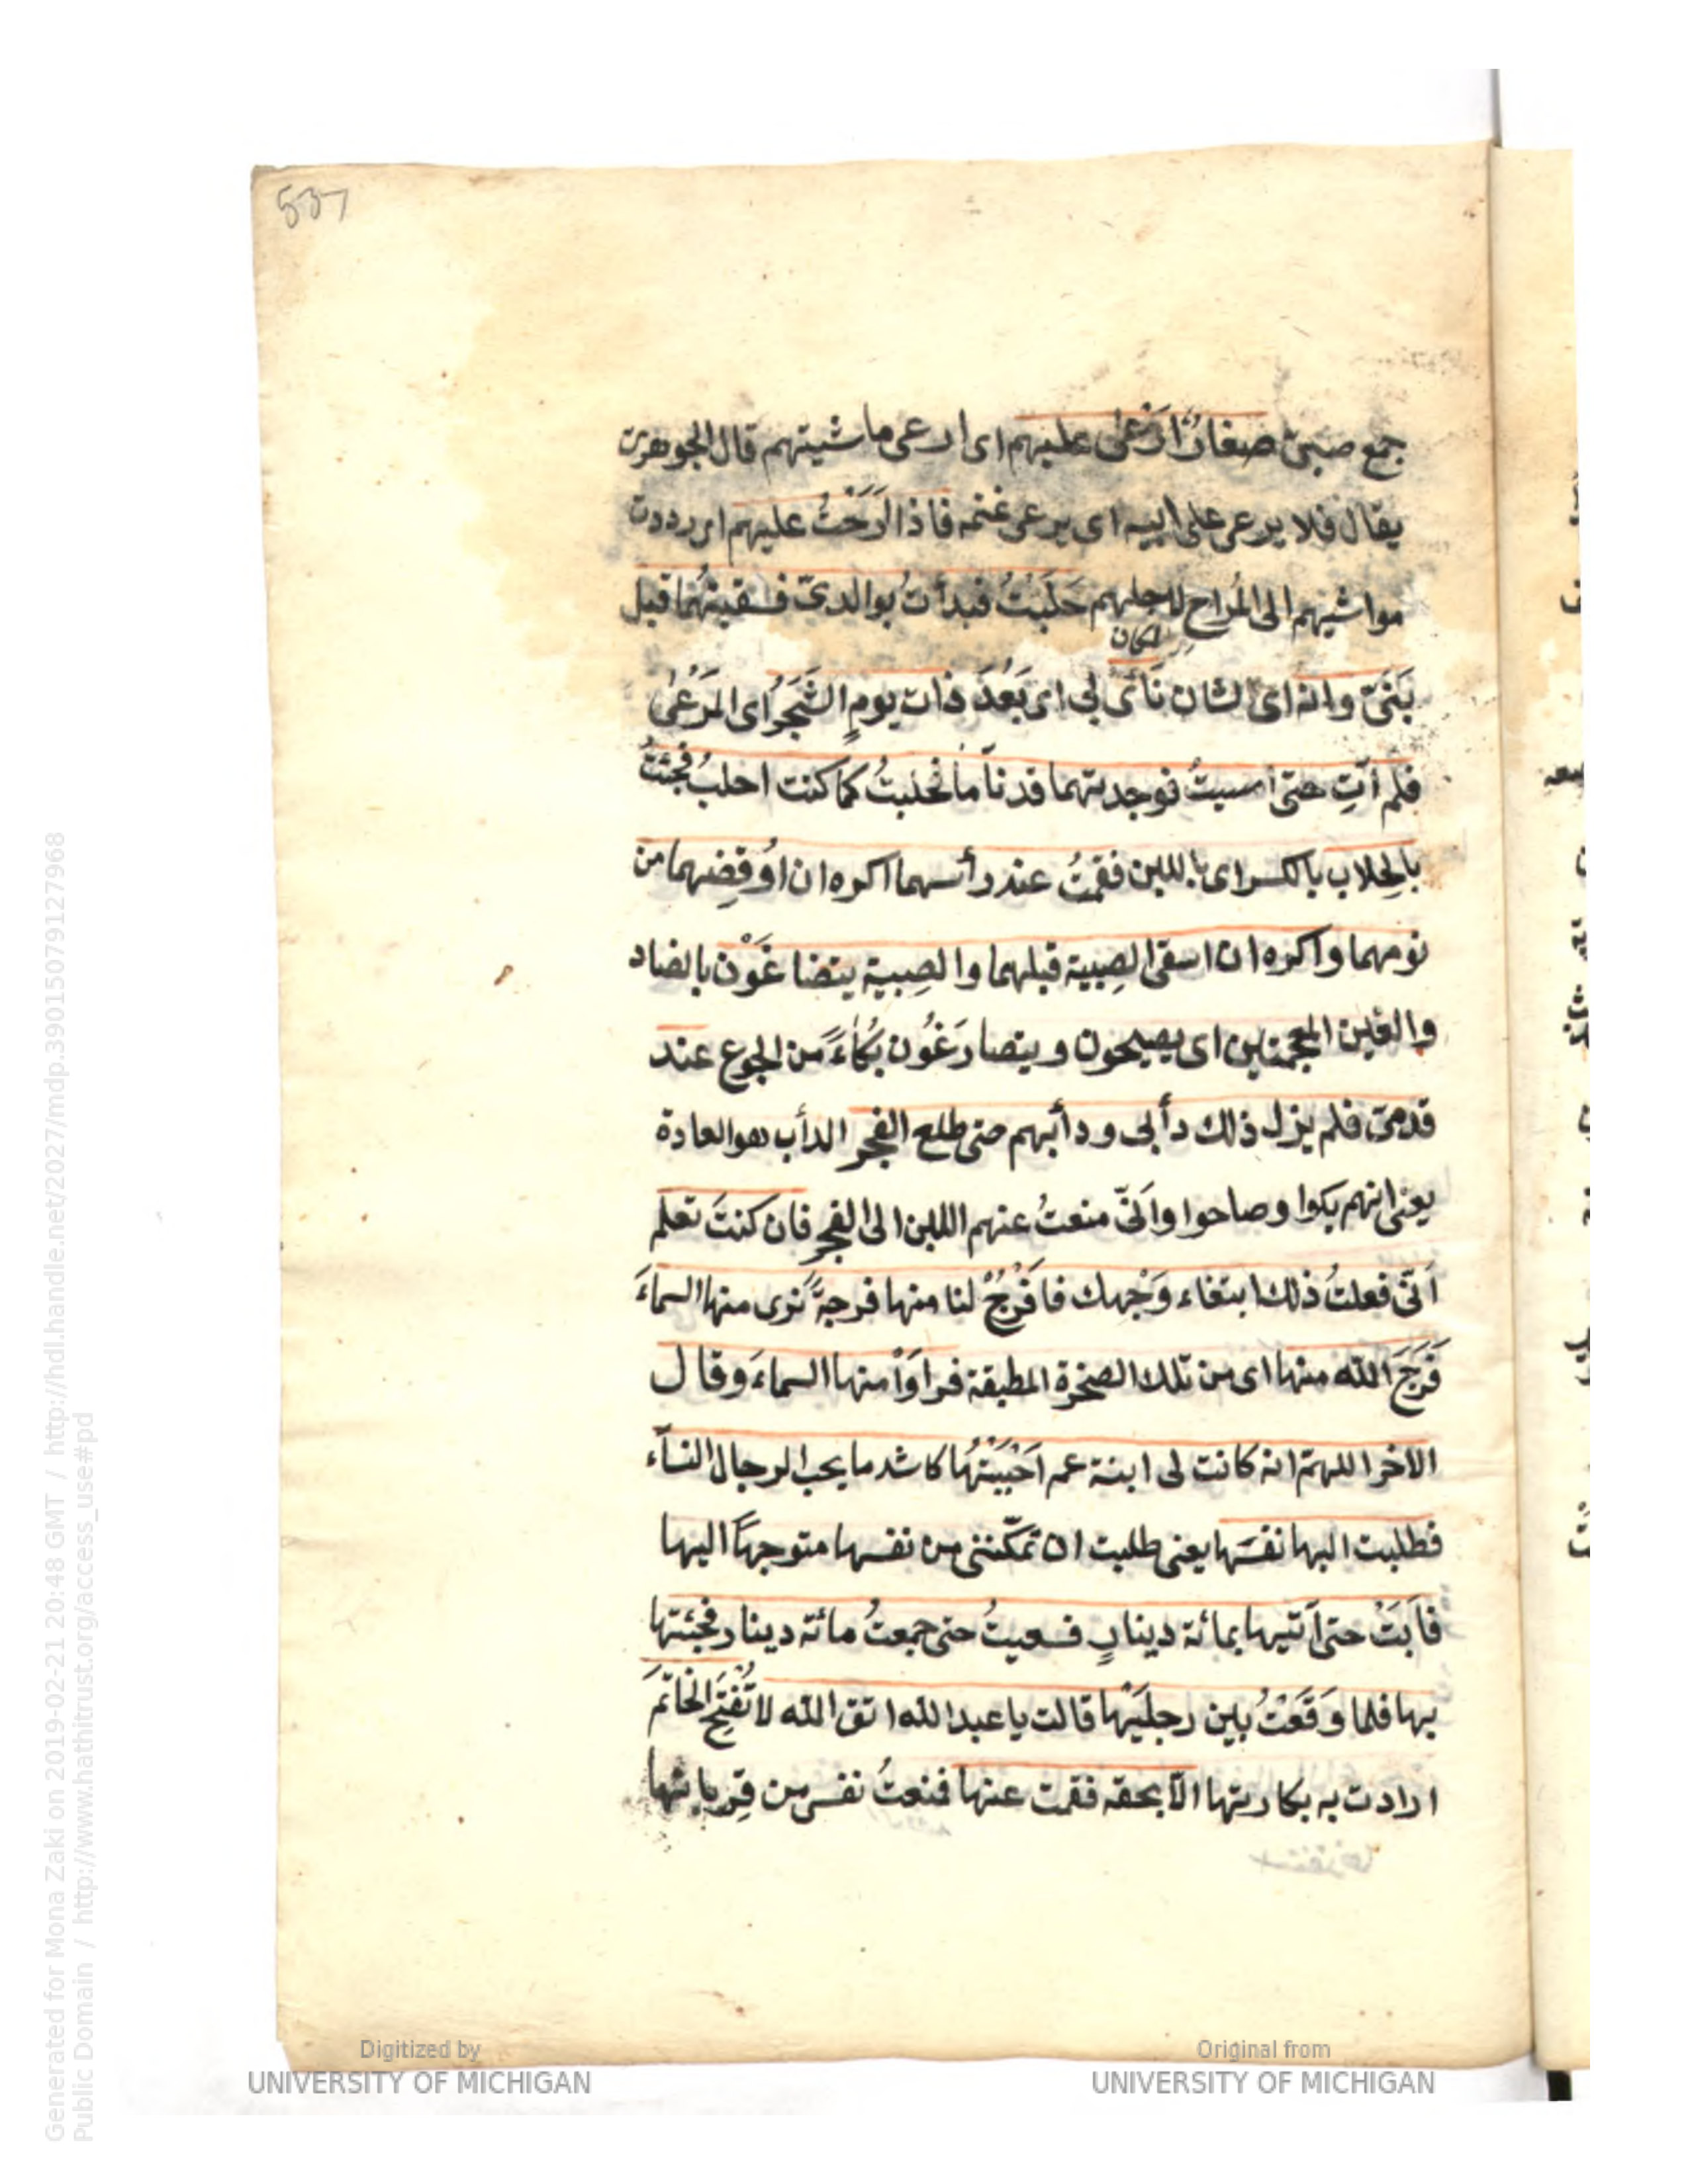 537
جمع صبىّ صغارٌ ارعىٰ عليهم اى ارعى ماشيتهم قال الجوهرىّ
يقال فلا يرعى على ابيه اى يرعى غنمه فاذا اَرَحْتُ عليهم اى رددت
مواشيهم الى المُراح لاجلهم حَلَبْتُ فبدأتُ بوالدىّ فسقيتُهما قبل
المكان
بَنِىَّ وانه اى الشان نَأىٰ بى اى بَعُدَ ذات يومٍ الشَجَرُ اى المَرْعىٰ
فلم اٰتِ حتى امسيتُ فوجدتهما قد ناما فحلبتُ كما كنت احلبُ فجئتُ
بالحِلاب بالكسر اى باللبن فقمتُ عند رأسهما اكره ان اُوقضِهما من
نومهما واكره ان اسقى الصِبية قبلهما والصِبية يتضاغَوْن بالضاد
والغين المعجمتين اى يصيحون ويتصارَغُون بُكاءً من الجوع عند
قدمىّ فلم يزل ذلك دأبى ودأبهم حتى طلع الفجر الدأب هو العادة
يعنى انهم بكوا وصاحوا واَنّى منعتُ عنهم اللبن الى الفجر فان كنتَ تعلم
اَنّى فعلتُ ذلك ابتغاء وَجْهِك فافْرُجْ لنا منها فرجةً نرى منها السماءَ
فَرَجَ الله منها اى من تلك الصخرة المطبقة فراَوْا منها السماءَ وقال
الاخر اللهمّ انه كانت لى ابنة عم اَحْبَبْتُها كاشد ما يحب الرجال النساء
فطلبت اليها نفسَها يعنى طلبت ان تمكّننى من نفسها متوجهاً اليها
فاَبَتْ حتى آتيها بمائة دينارٍ فسعيتُ حتى جمعتُ مائة دينار فجئتها
بها فلما وَقَعْتُ بين رجلَيْها قالت يا عبد الله اتق الله لا تَفْتَحِ الخاتمَ
ارادت به بكارتها الّا بحقه فقمت عنها فمنعتُ نفسى من قِربانها